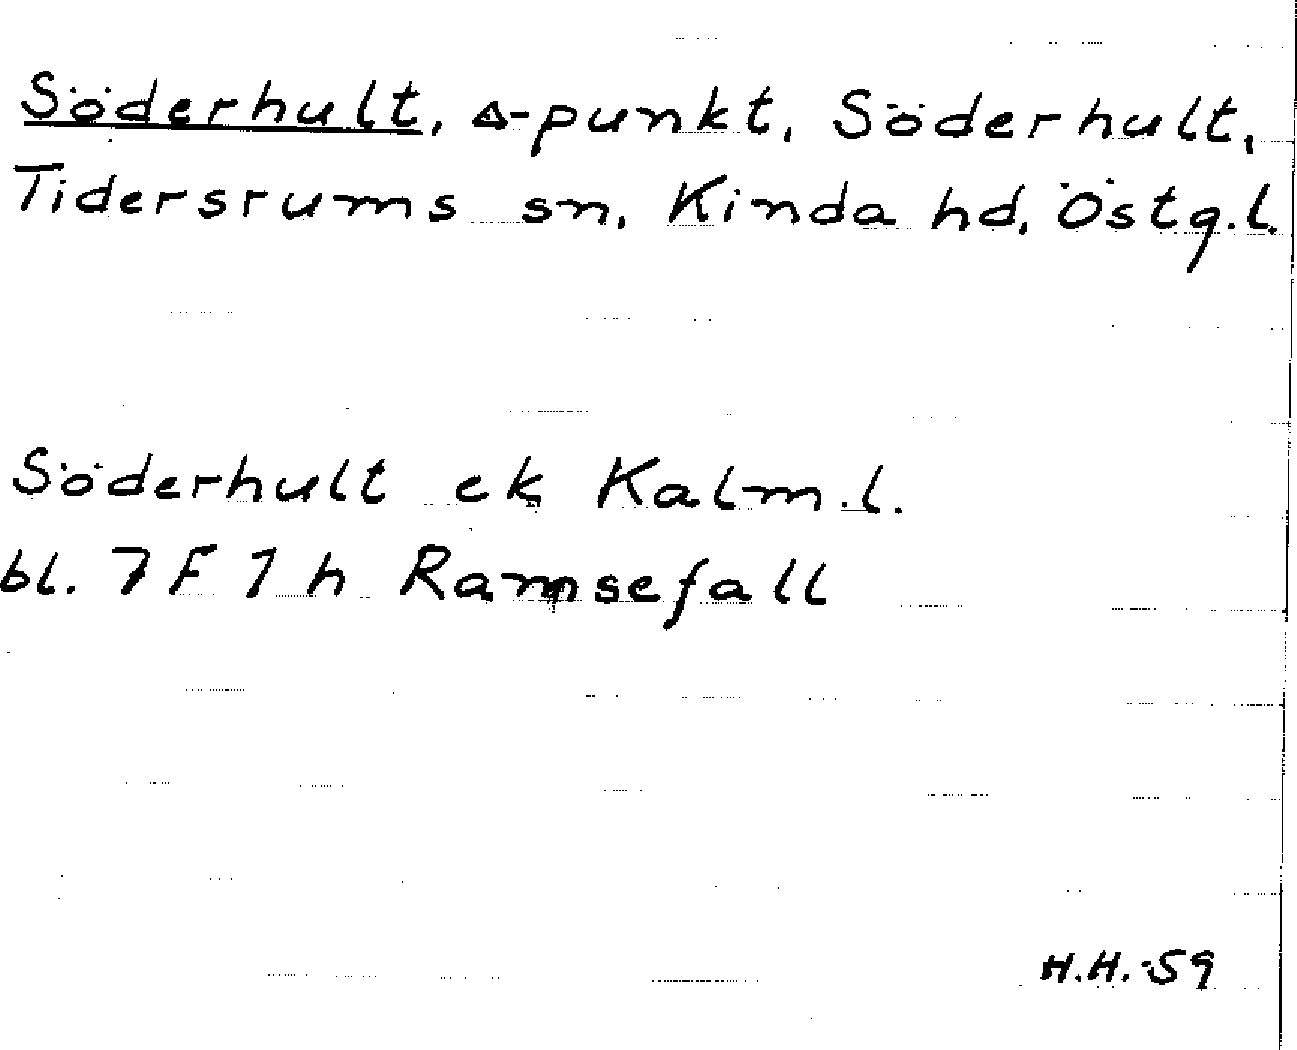 Söderhult, △-punkt, Söderhult,
Tidersrums sn, Kinda hd, Östg.l.
Söderhult ek Kalm.l.
bl. 7 F 7 h Ramsefall
H.H.-59